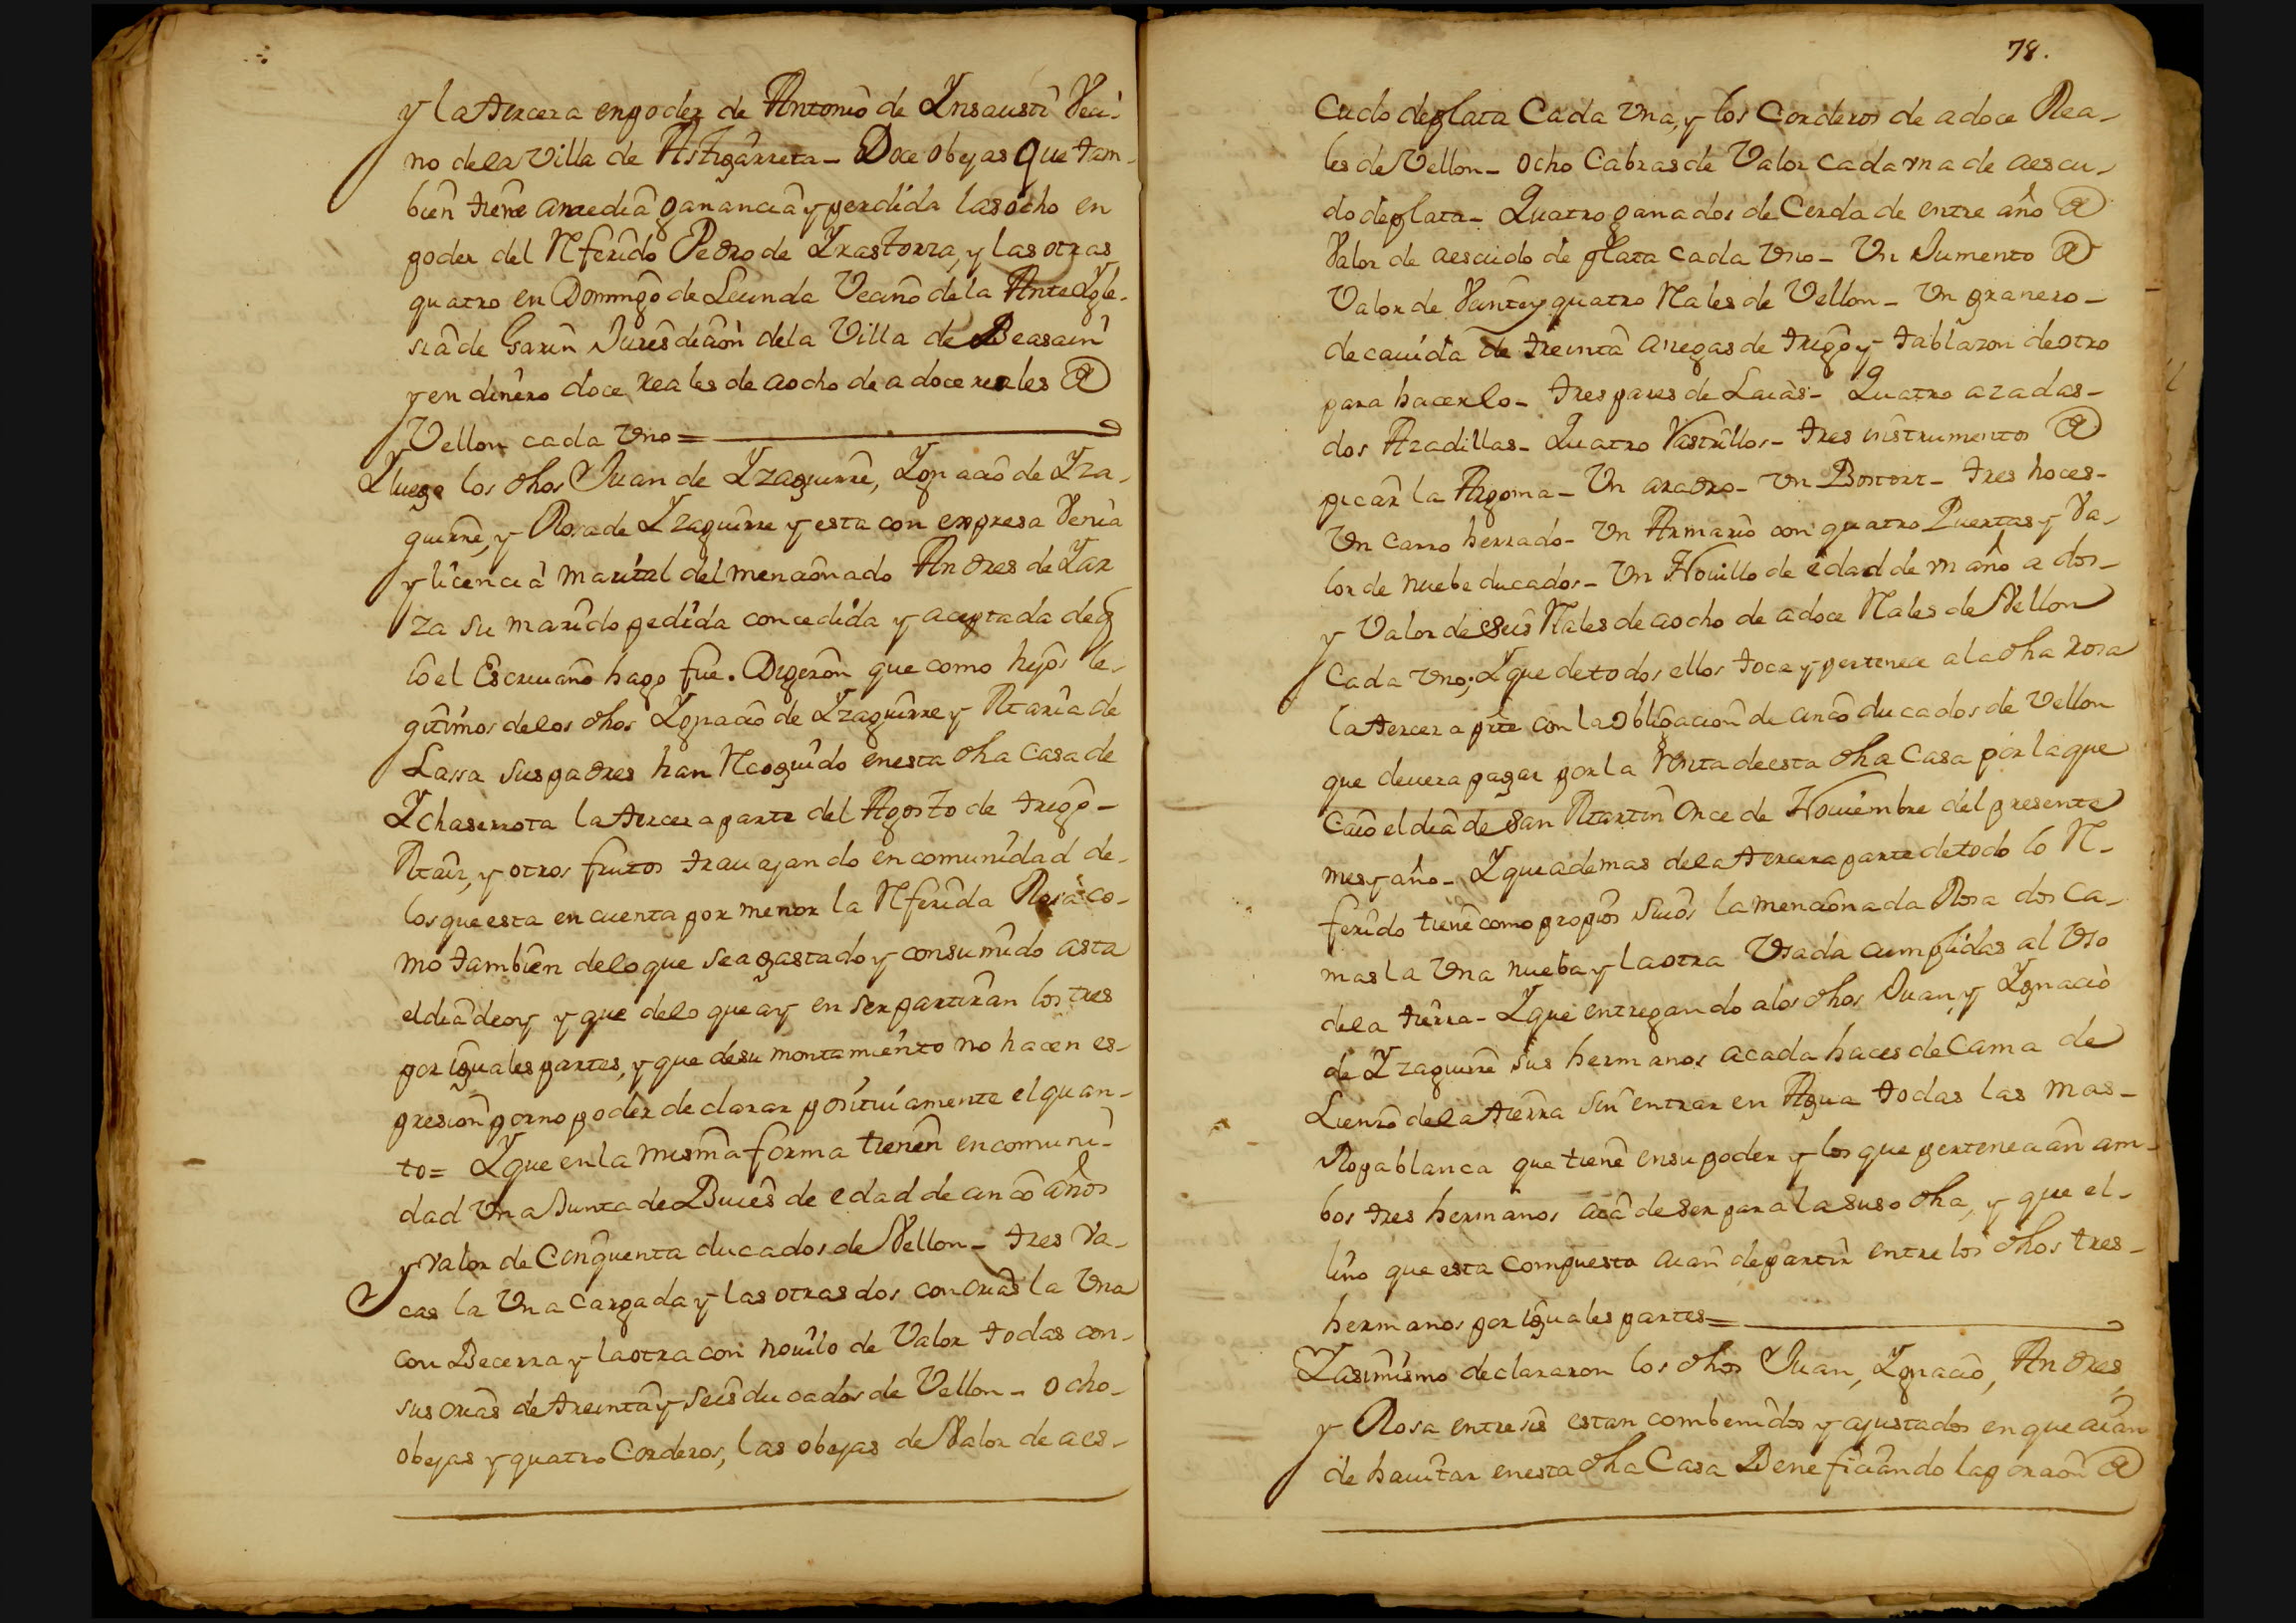 y la tercera en poder de Antonio de Ynsausti Veci-
no de la Villa de Astigarreta - Doce obejas que tam-
bien tiene a media ganancia y perdida las ocho en
poder del Referido Pedro de Yrastorza, y las otras
quatro en Domingo de Lecunda Vecino de la Ante Ygle-
sia de Garin Jurisdicion de la Villa de Beasain
y en dinero doce reales de a ocho de a doce reales @
Vellon cada Vno =
Y luego los dhos Juan de Yzaguirre, Ygnacio de Yza-
guirre, y Rosa de Yzaguirre y esta con expresa Venia
y licencia marital del mencionado Andres de Yar
za su marido pedida concedida y aceptada de q
io el Escriuano hago fee. Digeron que como hijos le-
gitimos de los dhos Ygnacio de Yzaguirre y Maria de
Lassa sus padres han Recoguido en esta dha Casa de
Ychaserrota la tercera parte del Agosto de trigo -
Maiz, y otros frutos trauajando en comunidad de-
los que esta en cuenta por menor la Referida Rosa co-
mo tambien de lo que se a gastado y consumido asta
el dia de oy y que de lo que ay en ser partiran los tres
por iguales partes, y que de su montamiento no hacen es-
presion por no poder declarar posituiamente el quan-
to = Y que en la misma forma tienen en comuni-
dad Vna Junta de Buies de edad de cinco años
y Valor de Cinquenta ducados de Vellon - tres Va-
cas la Vna cargada y las otras dos con crias la Vna
con Becerra y la otra con nouilo de Valor todas con-
sus crias de treinta y seis ducados de Vellon - ocho -
obejas y quatro Corderos, las obejas de Valor de a es-
78.
cudo de plata Cada Vna, y los Corderos de a doce Rea-
les de Vellon - ocho Cabras de Valor cada vna de a escu-
do de plata - Quatro ganados de Cerda de entre año @
Valor de a escudo de plata cada Vno - Vn Jumento @
Valor de Veinte y quatro Rales de Vellon - Vn granero -
de cauida de treinta anegas de trigo y tablazon de otro
para hacerlo - tres pares de Laias - Quatro azadas -
dos Azadillas - Quatro Rastrillos - tres instrumentos @
picar la Argoma - Vn aradro - Vn Bostort - tres hoces -
Vn carro herrado - Vn Armario con quatro Puertas y Va-
lor de nuebe ducados - Vn Nouillo de edad de vn año a dos -
y Valor de seis Rales de a ocho de a doce Rales de Vellon
Cada Vno; Y que de todos ellos toca y pertenece a la dha rosa
la tercera pte con la obligacion de cinco ducados de Vellon
que deuera pagar por la Renta de esta dha Casa por la que
caio el dia de San Martin Once de Nouiembre del presente
mes y año - Y que ademas de la tercera parte de todo lo Re-
ferido tiene como propios Suios la mencionada Rosa dos Ca-
mas la Vna nueba y la otra Vsada cumplidas al Vso
de la tierra - Y que entregando a los dhos Juan, y Ygnacio
de Yzaguirre sus hermanos a cada haces de Cama de
Lienzo de la tierra sin entrar en Agua todas las mas -
Ropa blanca que tiene en su poder y los que pertenecian am-
bos tres hermanos aia de ser para la suso dha, y que el -
lino que esta compuesto aian de partir entre los dhos tres -
hermanos por iguales partes =
Y asimismo declararon los dhos Juan, Ygnacio, Andres,
y Rosa entre sis estan combenidos y ajustados en que aian
de hauitar en esta dha Casa Beneficiando la porcion @